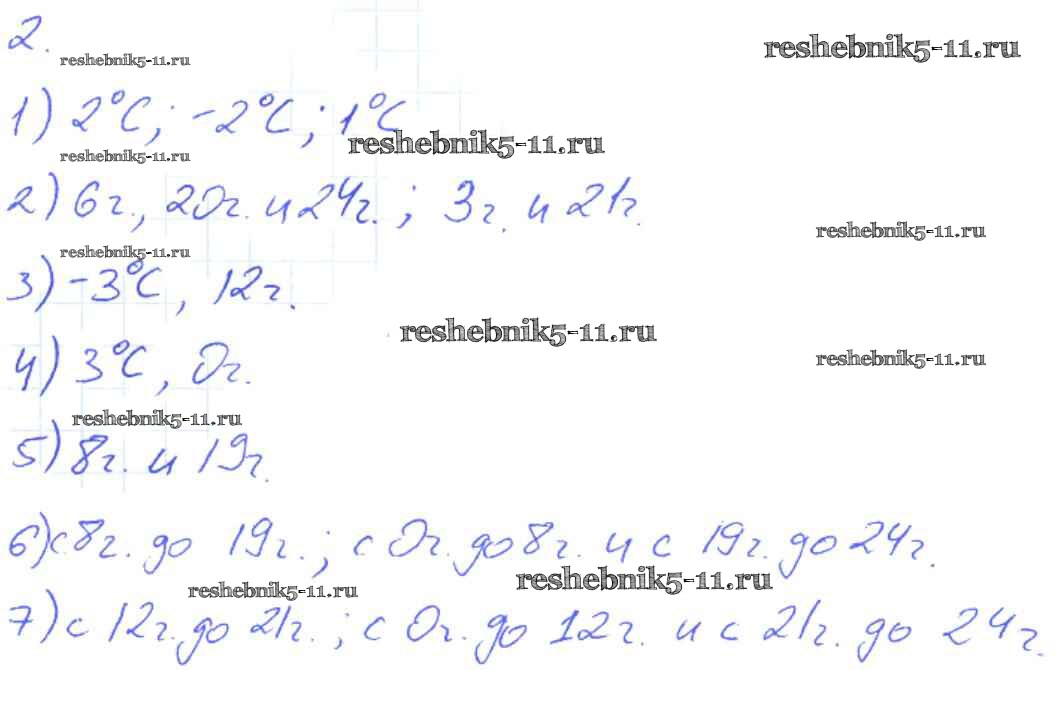 2.
reshebnik5-11.ru
reshebnik5-11.ru
1) 2°C; -2°C; 1°C
reshebnik5-11.ru
reshebnik5-11.ru
2) 6г., 20г. и 24г.; 3г. и 21г.
reshebnik5-11.ru
reshebnik5-11.ru
3) -3°C, 12г.
reshebnik5-11.ru
4) 3°C, 0г.
reshebnik5-11.ru
reshebnik5-11.ru
5) 8г. и 19г.
6) с 8г. до 19г.; с 0г. до 8г. и с 19г. до 24г.
reshebnik5-11.ru
reshebnik5-11.ru
7) с 12г. до 21г.; с 0г. до 12г. и с 21г. до 24г.